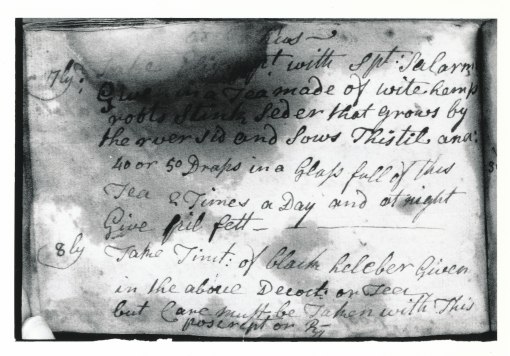 with Spt: Salarm
7ly: Give in a Tea made of wite hemp
robts Stink Seder that Grows by
the river sid and Sows Thistil and:
40 or 50 Draps in a Glass full of this
Tea 2 Times a Day and at night
Give pil fett —
8ly Take Tinct: of black heleber Given
in the above Decoct: or Tea
but Care must be Taken with This
poscript or